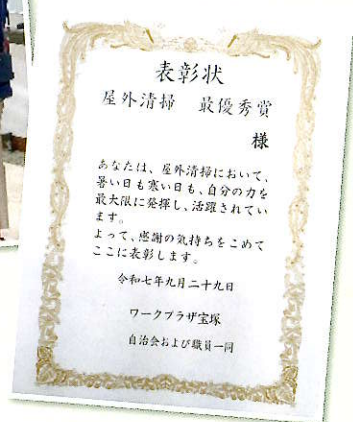 表彰状
屋外清掃　最優秀賞
様
あなたは、屋外清掃において、
暑い日も寒い日も、自分の力を
最大限に発揮し、活躍されてい
ます。
よって、感謝の気持ちをこめて
ここに表彰します。
令和七年九月二十九日
ワークプラザ宝塚
自治会および職員一同